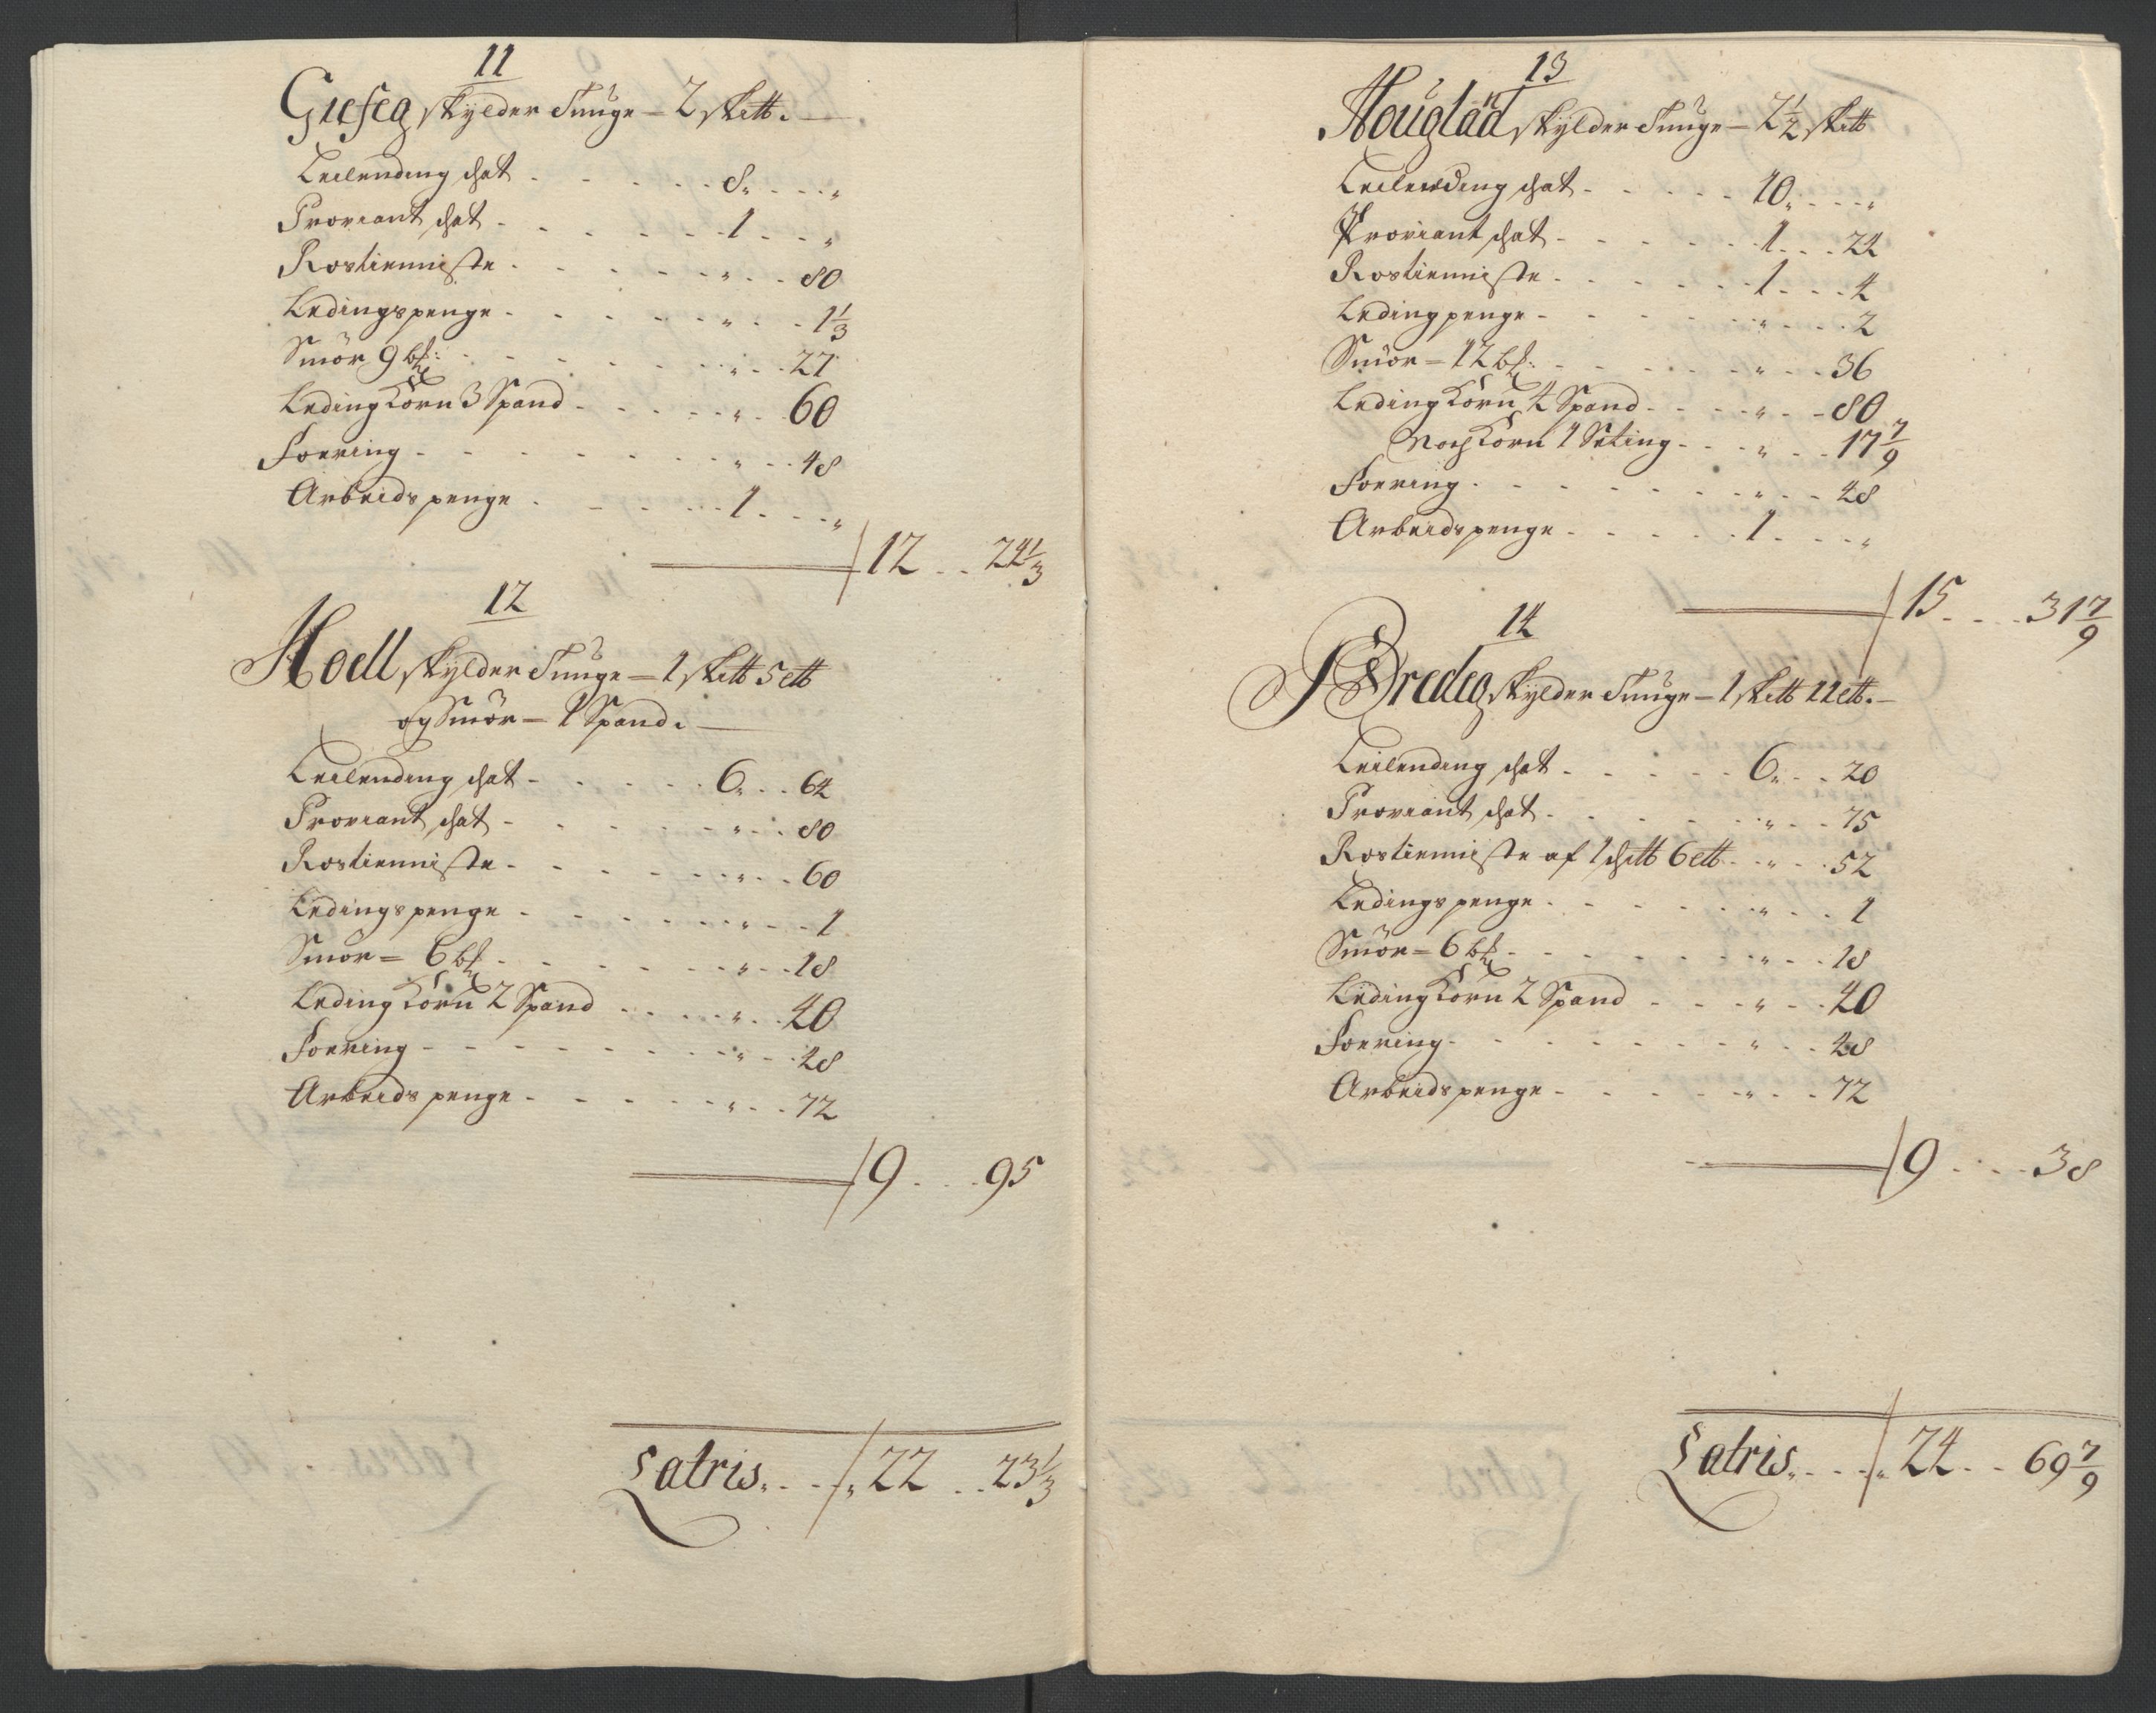 11
Giefeg skylder Aunge - 2 skett.
Leilending schat - - - 8 - - "
Proviant schat - - - 1 - - "
Rostienniste - - - " - - 80
Ledingspenge - - - " - - 1 1/3
Smör 9 bß: - - - " - - 27
Leding Korn 3 Spand - - - " - - 60
Foering - - - " - - 48
Arbeids penge - - - 1 - - "
12 - - 24 1/3
12
Hoell skylder Aunge - 1 skett 5 ett
og Smör - 1 Spand.
Leilending schat - - - 6 - - 64
Proviant schat - - - " - - 80
Rostienniste - - - " - - 60
Ledings penge - - - " - - 1
Smör = 6 bß - - - " - - 18
Leding Korn 2 Spand - - - " - - 40
Foering - - - " - - 48
Arbeids penge - - - " - - 72
9 - - 95
Latris - - 22 - - 23 1/3
13
Houglad skylder Aunge - 2 1/2 skett
Leilending schat - - - 10 - - "
Proviant schat - - - 1 - - 24
Rostienniste - - - 1 - - 4
Leding penge - - - " - - 2
Smör = 12 bß: - - - " - - 36
Leding Korn 4 Spand - - - " - - 80
Noch Korn 1 Seting - - - " - - 17 7/9
Foering - - - " - - 48
Arbeids penge - - - 1 - - "
15 - - 31 7/9
14
Bredeg skylder Aunge - 1 skett 11 ett.
Leilending schat - - - 6 - - 20
Proviant schat - - - " - - 75
Rostienniste af 1 schett 6 ett - - " - - 52
Ledings penge - - - " - - 1
Smör = 6 bß - - - " - - 18
Leding Korn 2 Spand - - - " - - 40
Foering - - - " - - 48
Arbeids penge - - - " - - 72
9 - - 38
Latris - - 24 - - 69 7/9